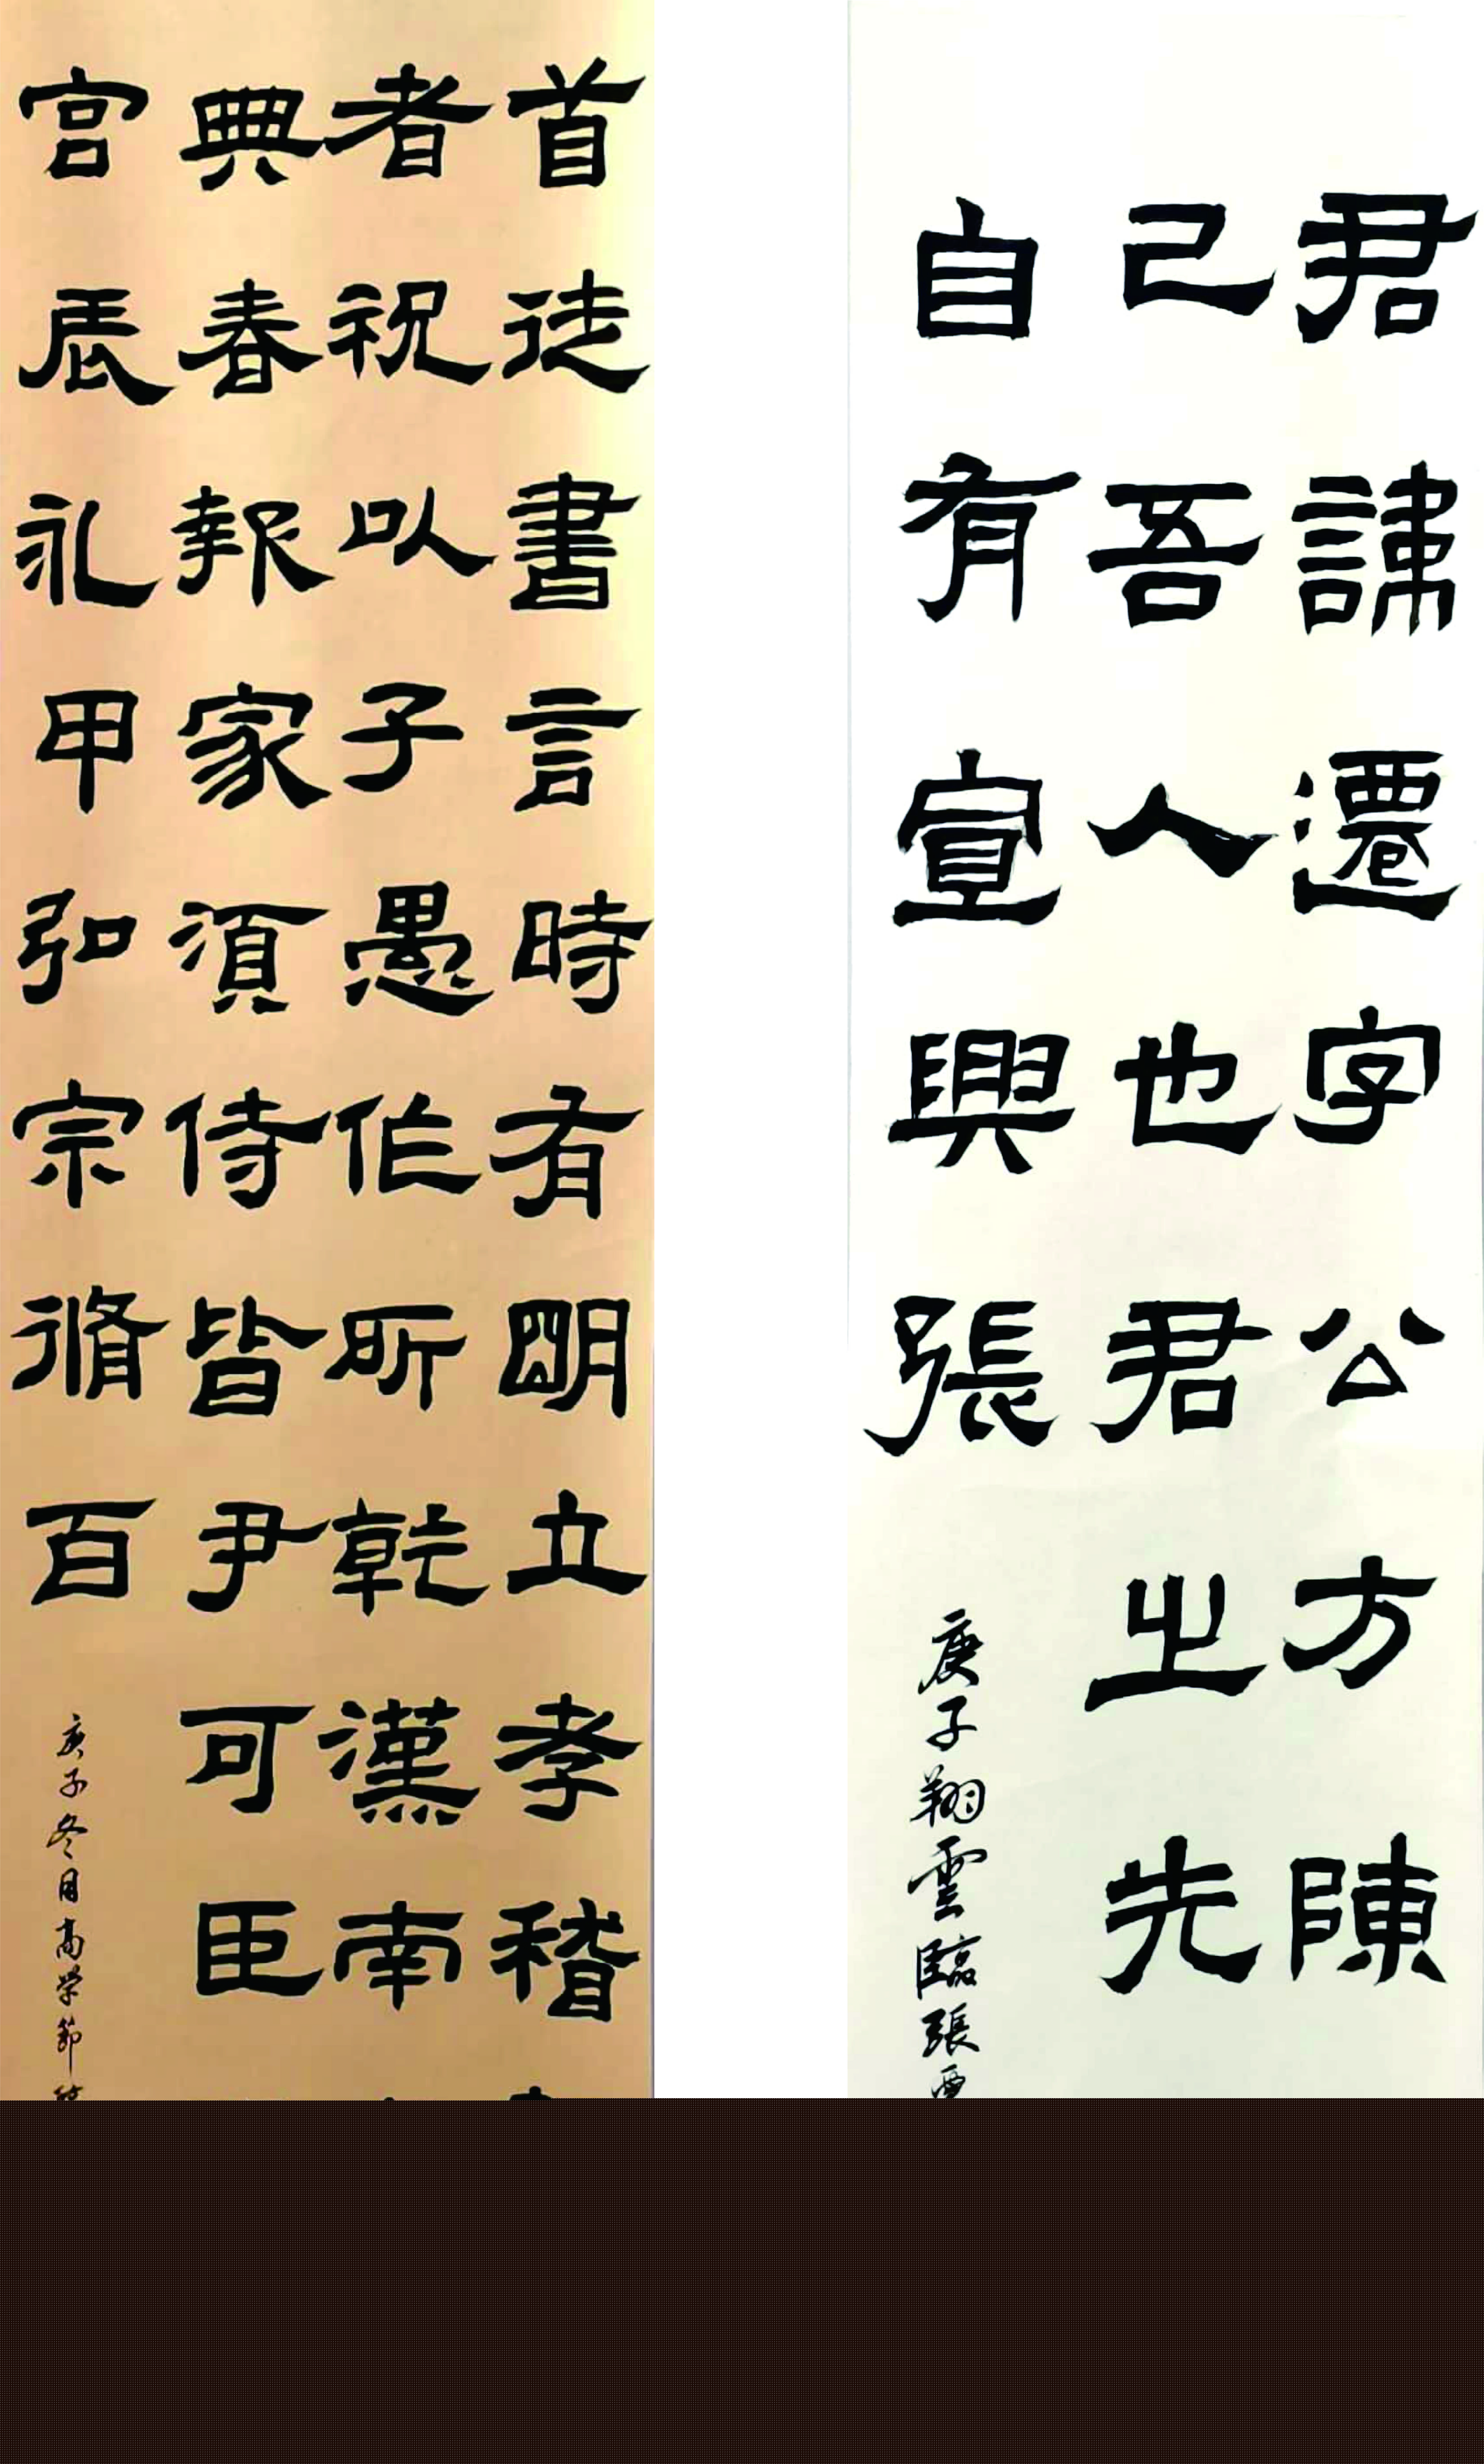 君諱遷字公方陳
己吾人也君之先
自有宣興張
庚子翔雲臨張
首徒書言時有朙立孝稽
者祝以子愚作所乾漢南
典春報家須侍皆尹可臣
宮辰礼甲弘宗脩百
庚子冬月高学節